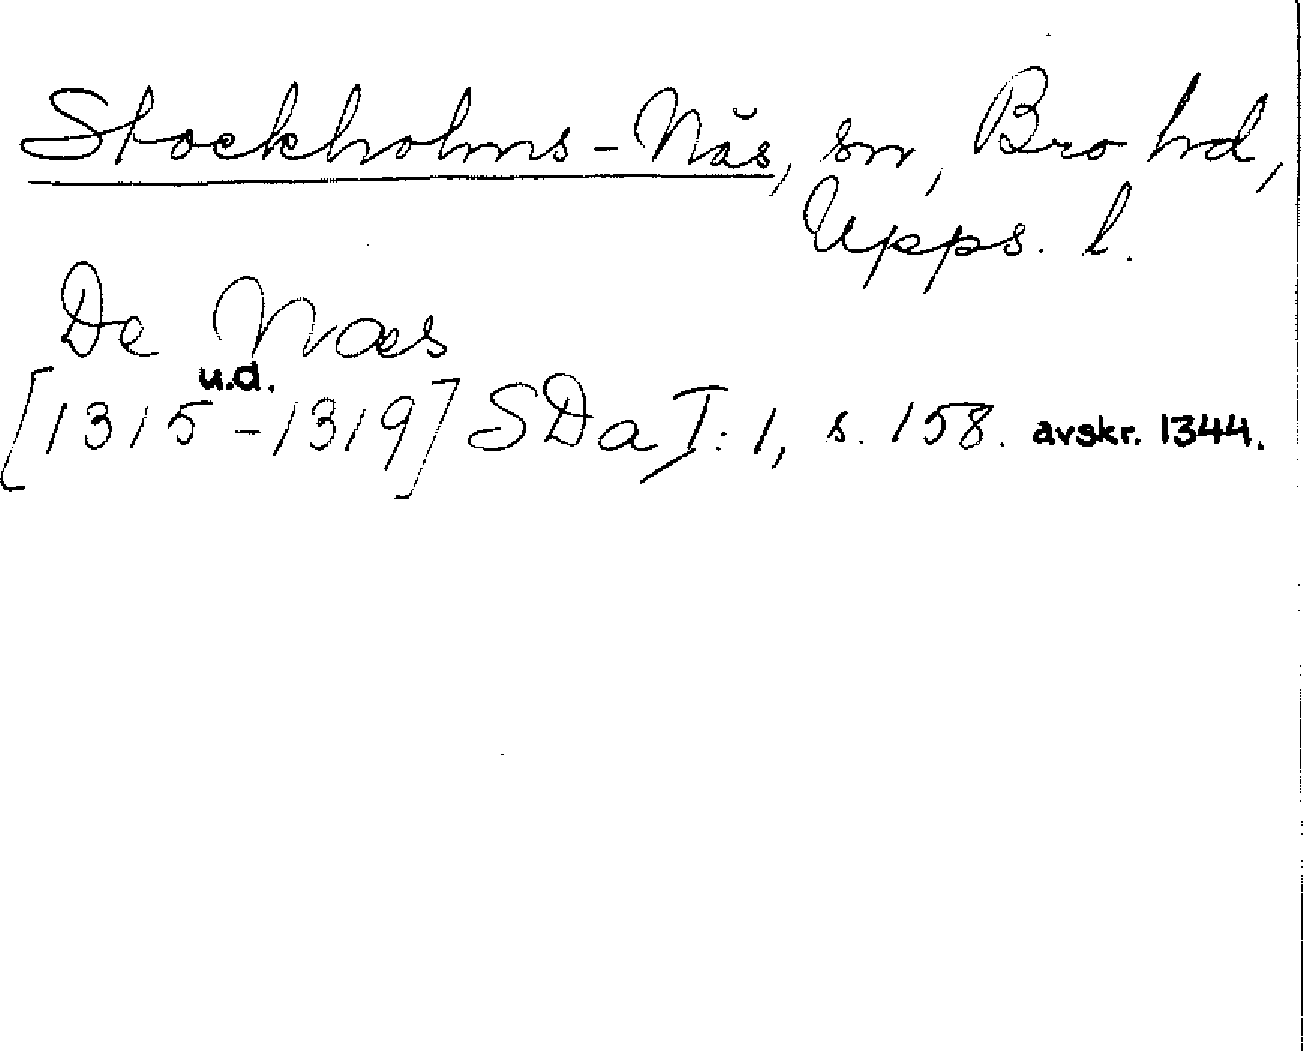 Stockholms-Näs, sn, Bro hd,
Upps. l.
De Næs
u.d.
[1315-1319] SDa I:1, s. 158. avskr. 1344.